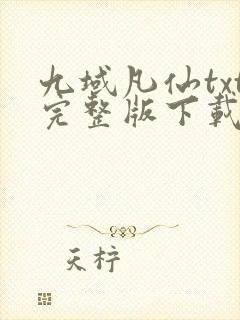 九域凡仙txt
完整版下载
天柠